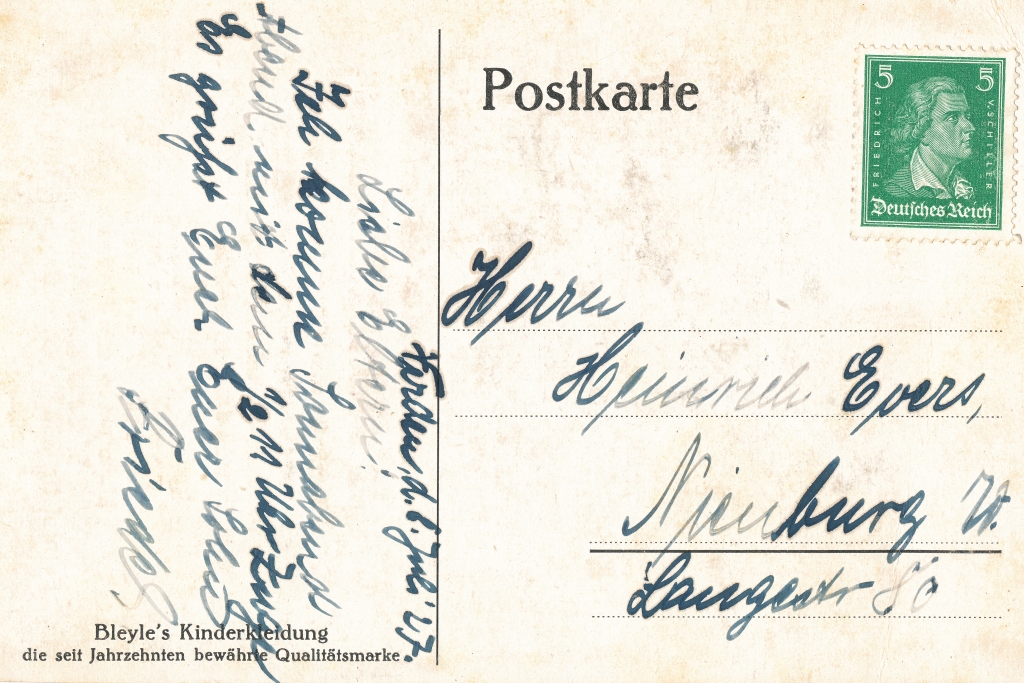 Postkarte
5 5
FRIEDRICH V SCHILLER
Deutsches Reich
Herrn
Heinrich Evers,
Nienburg W.
Langestr
Varden, d. 6. Juli '27.
Liebe Eltern!
Ich komme Sonnabend
Abend mit dem 1/2 11 Uhr Zuge
Es grüßt Euch Euer Sohn
Friedel
Bleyle's Kinderkleidung
die seit Jahrzehnten bewährte Qualitätsmarke.